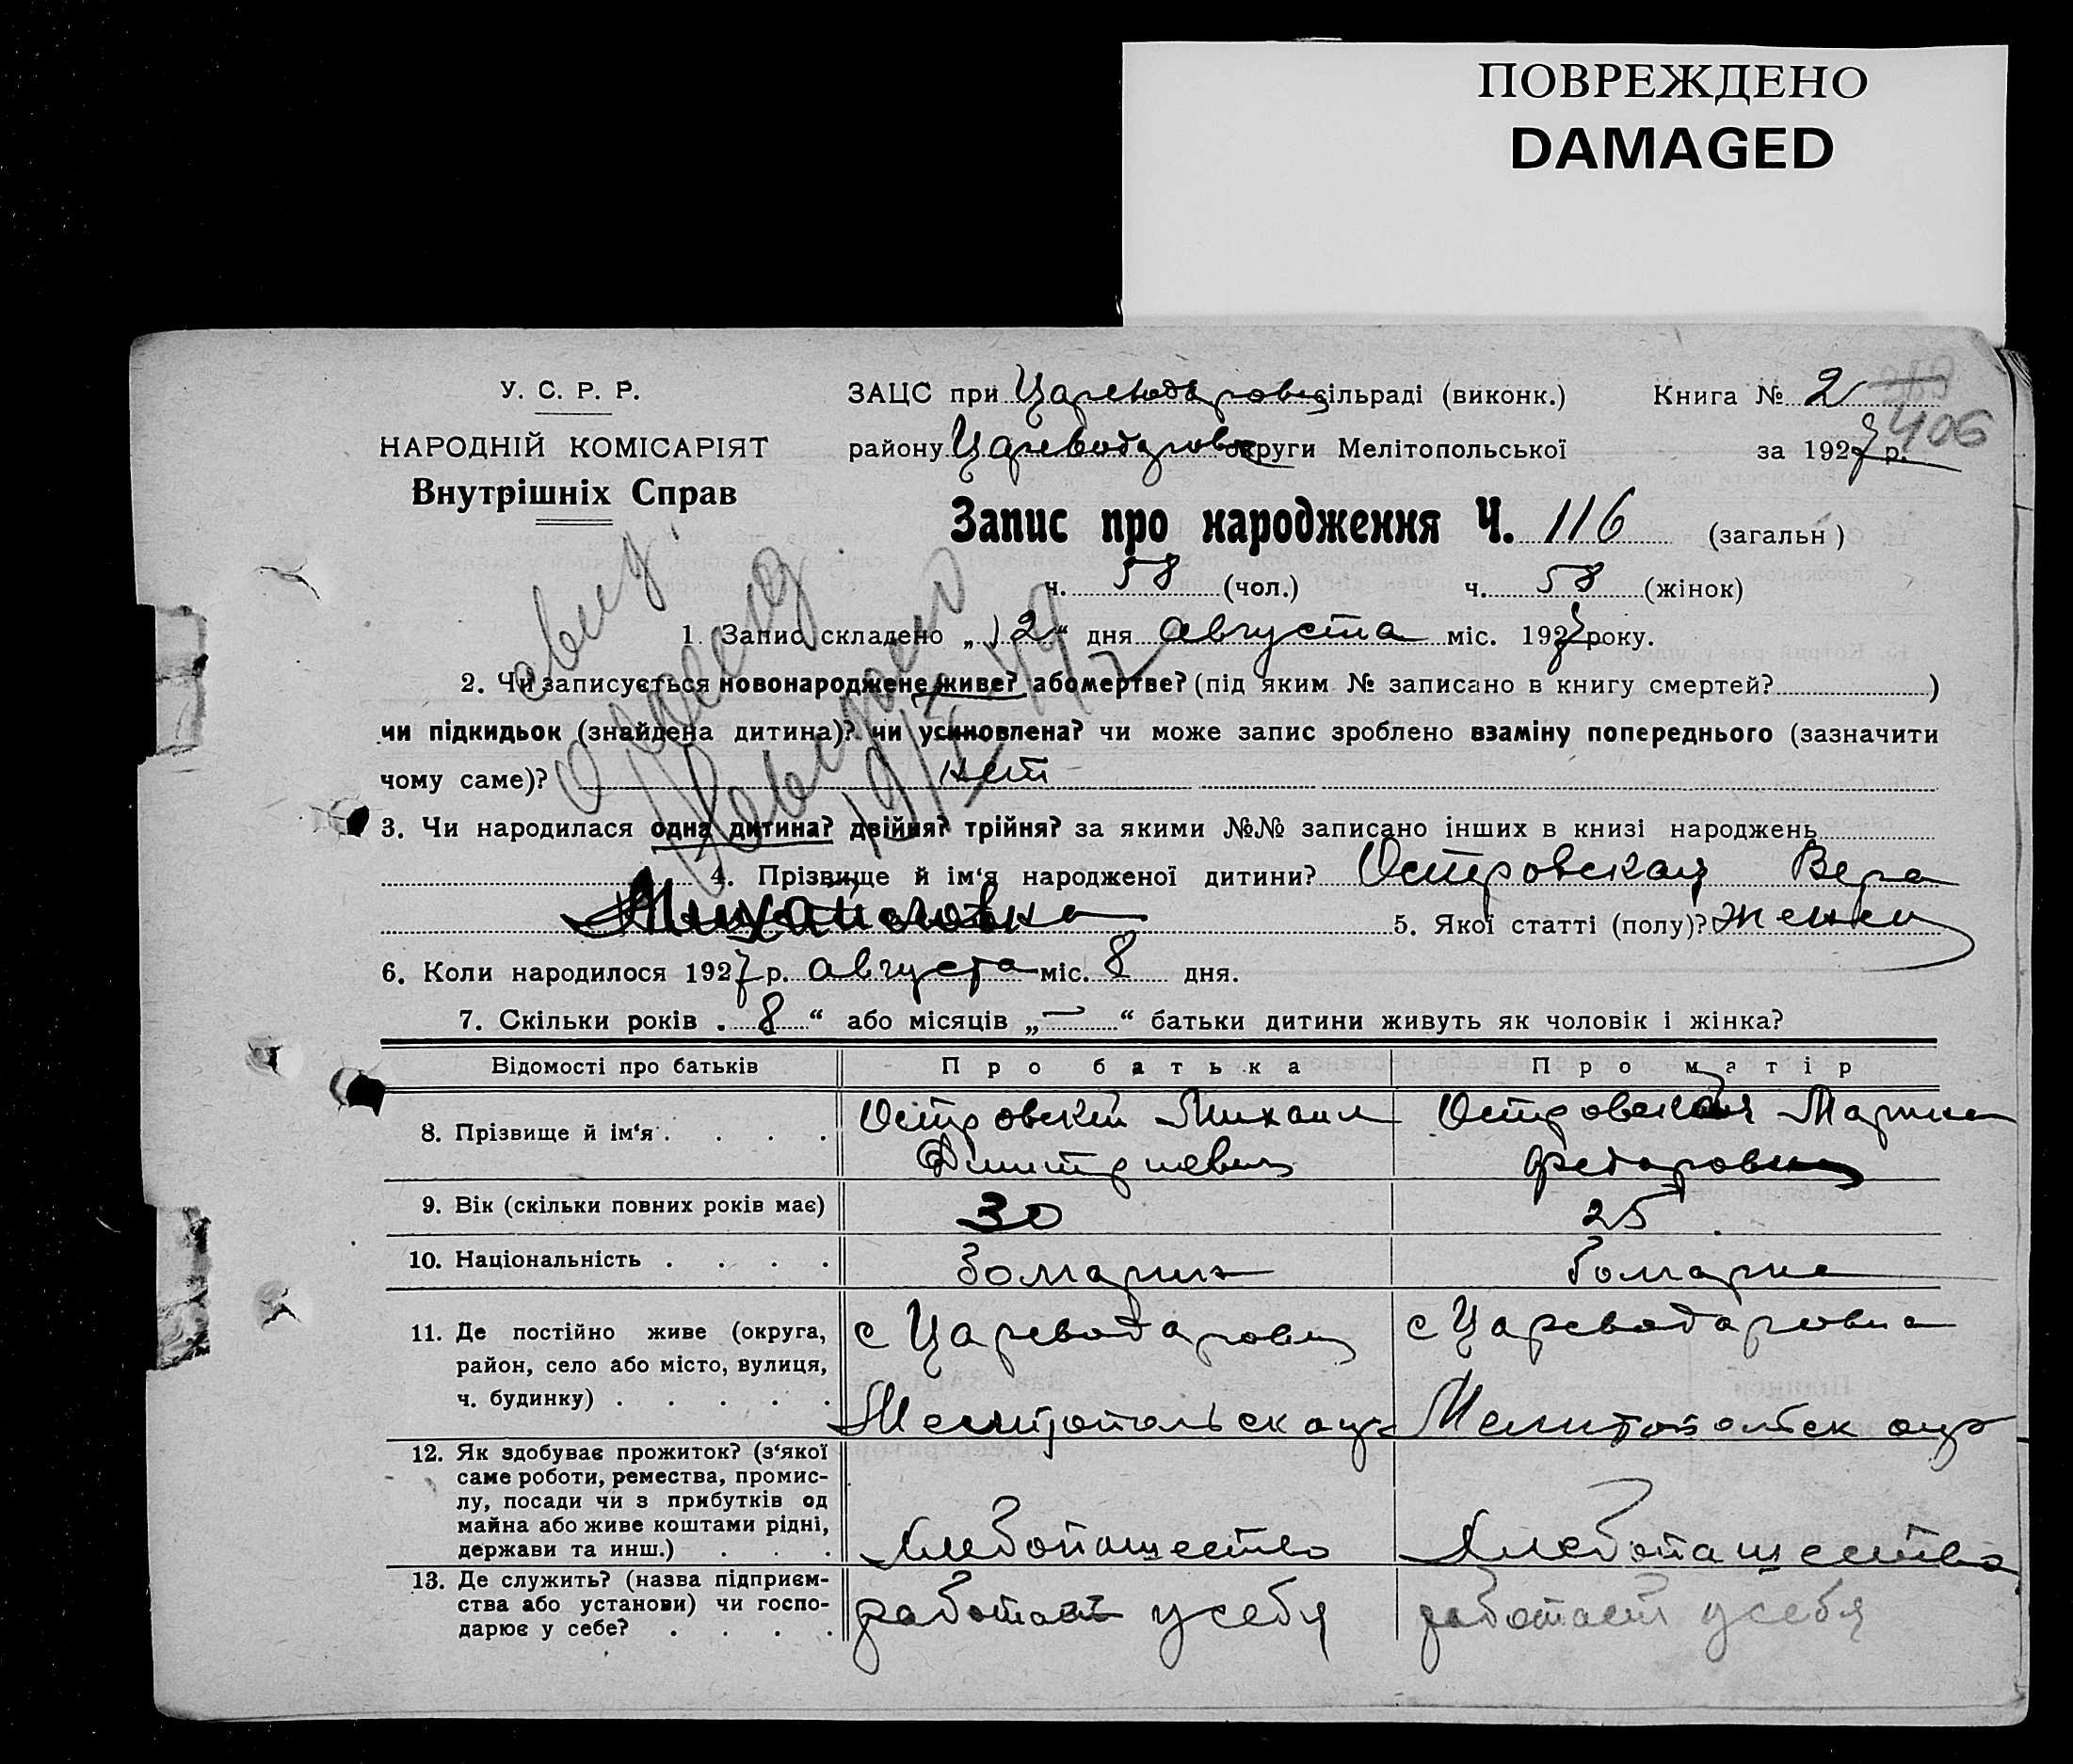 ПОВРЕЖДЕНО
DAMAGED
У. С. Р. Р.
НАРОДНІЙ КОМІСАРІЯТ
Внутрішніх Справ
ЗАЦС при Царевода ровц сільраді (виконк.) Книга № 2 359
району Цареводаровк округи Мелітопольської за 1927 р. 406
Запис про народження Ч. 116 (загальн )
ч. 58 (чол.) ч. 58 (жінок)
1. Запис складено „ 12 “ дня августа міс. 1927 року.
2. Чи записується новонароджене живе? або мертве? (під яким № записано в книгу смертей? )
чи підкидьок (знайдена дитина)? чи усиновлена? чи може запис зроблено взаміну попереднього (зазначити
чому саме)? нет
3. Чи народилася одна дитина? двійня? трійня? за якими №№ записано інших в книзі народжень
4. Прізвище й ім‘я народженої дитини? Островская Вера
Михайловна 5. Якої статті (полу)? женск
6. Коли народилося 1927 р. августа міс. 8 дня.
7. Скільки років „ 8 “ або місяців „ — “ батьки дитини живуть як чоловік і жінка?
Відомості про батьків Про батька Про матір
8. Прізвище й ім‘я . . . . Островский Михаил Островская Мария
Димитриевич Федоровна
9. Вік (скільки повних років має) 30 25
10. Національність . . . . болгарин болгарка
11. Де постійно живе (округа,
район, село або місто, вулиця,
ч. будинку) . . . . .
с Цареводаровц с Цареводаровка
Мелитопольск окр Мелитопольск окр
12. Як здобуває прожиток? (з‘якої
саме роботи, ремества, промис-
лу, посади чи з прибутків од
майна або живе коштами рідні,
держави та инш.) . . .
хлебопашество хлебопашество
13. Де служить? (назва підприєм-
ства або установи) чи госпо-
дарює у себе? . . . .
работает у себя работает у себя